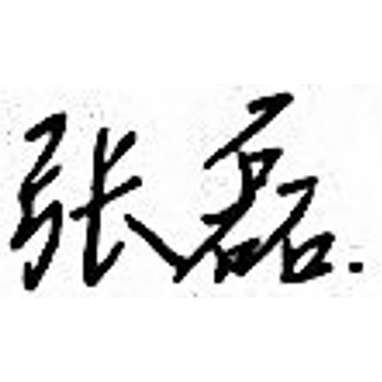 张磊.